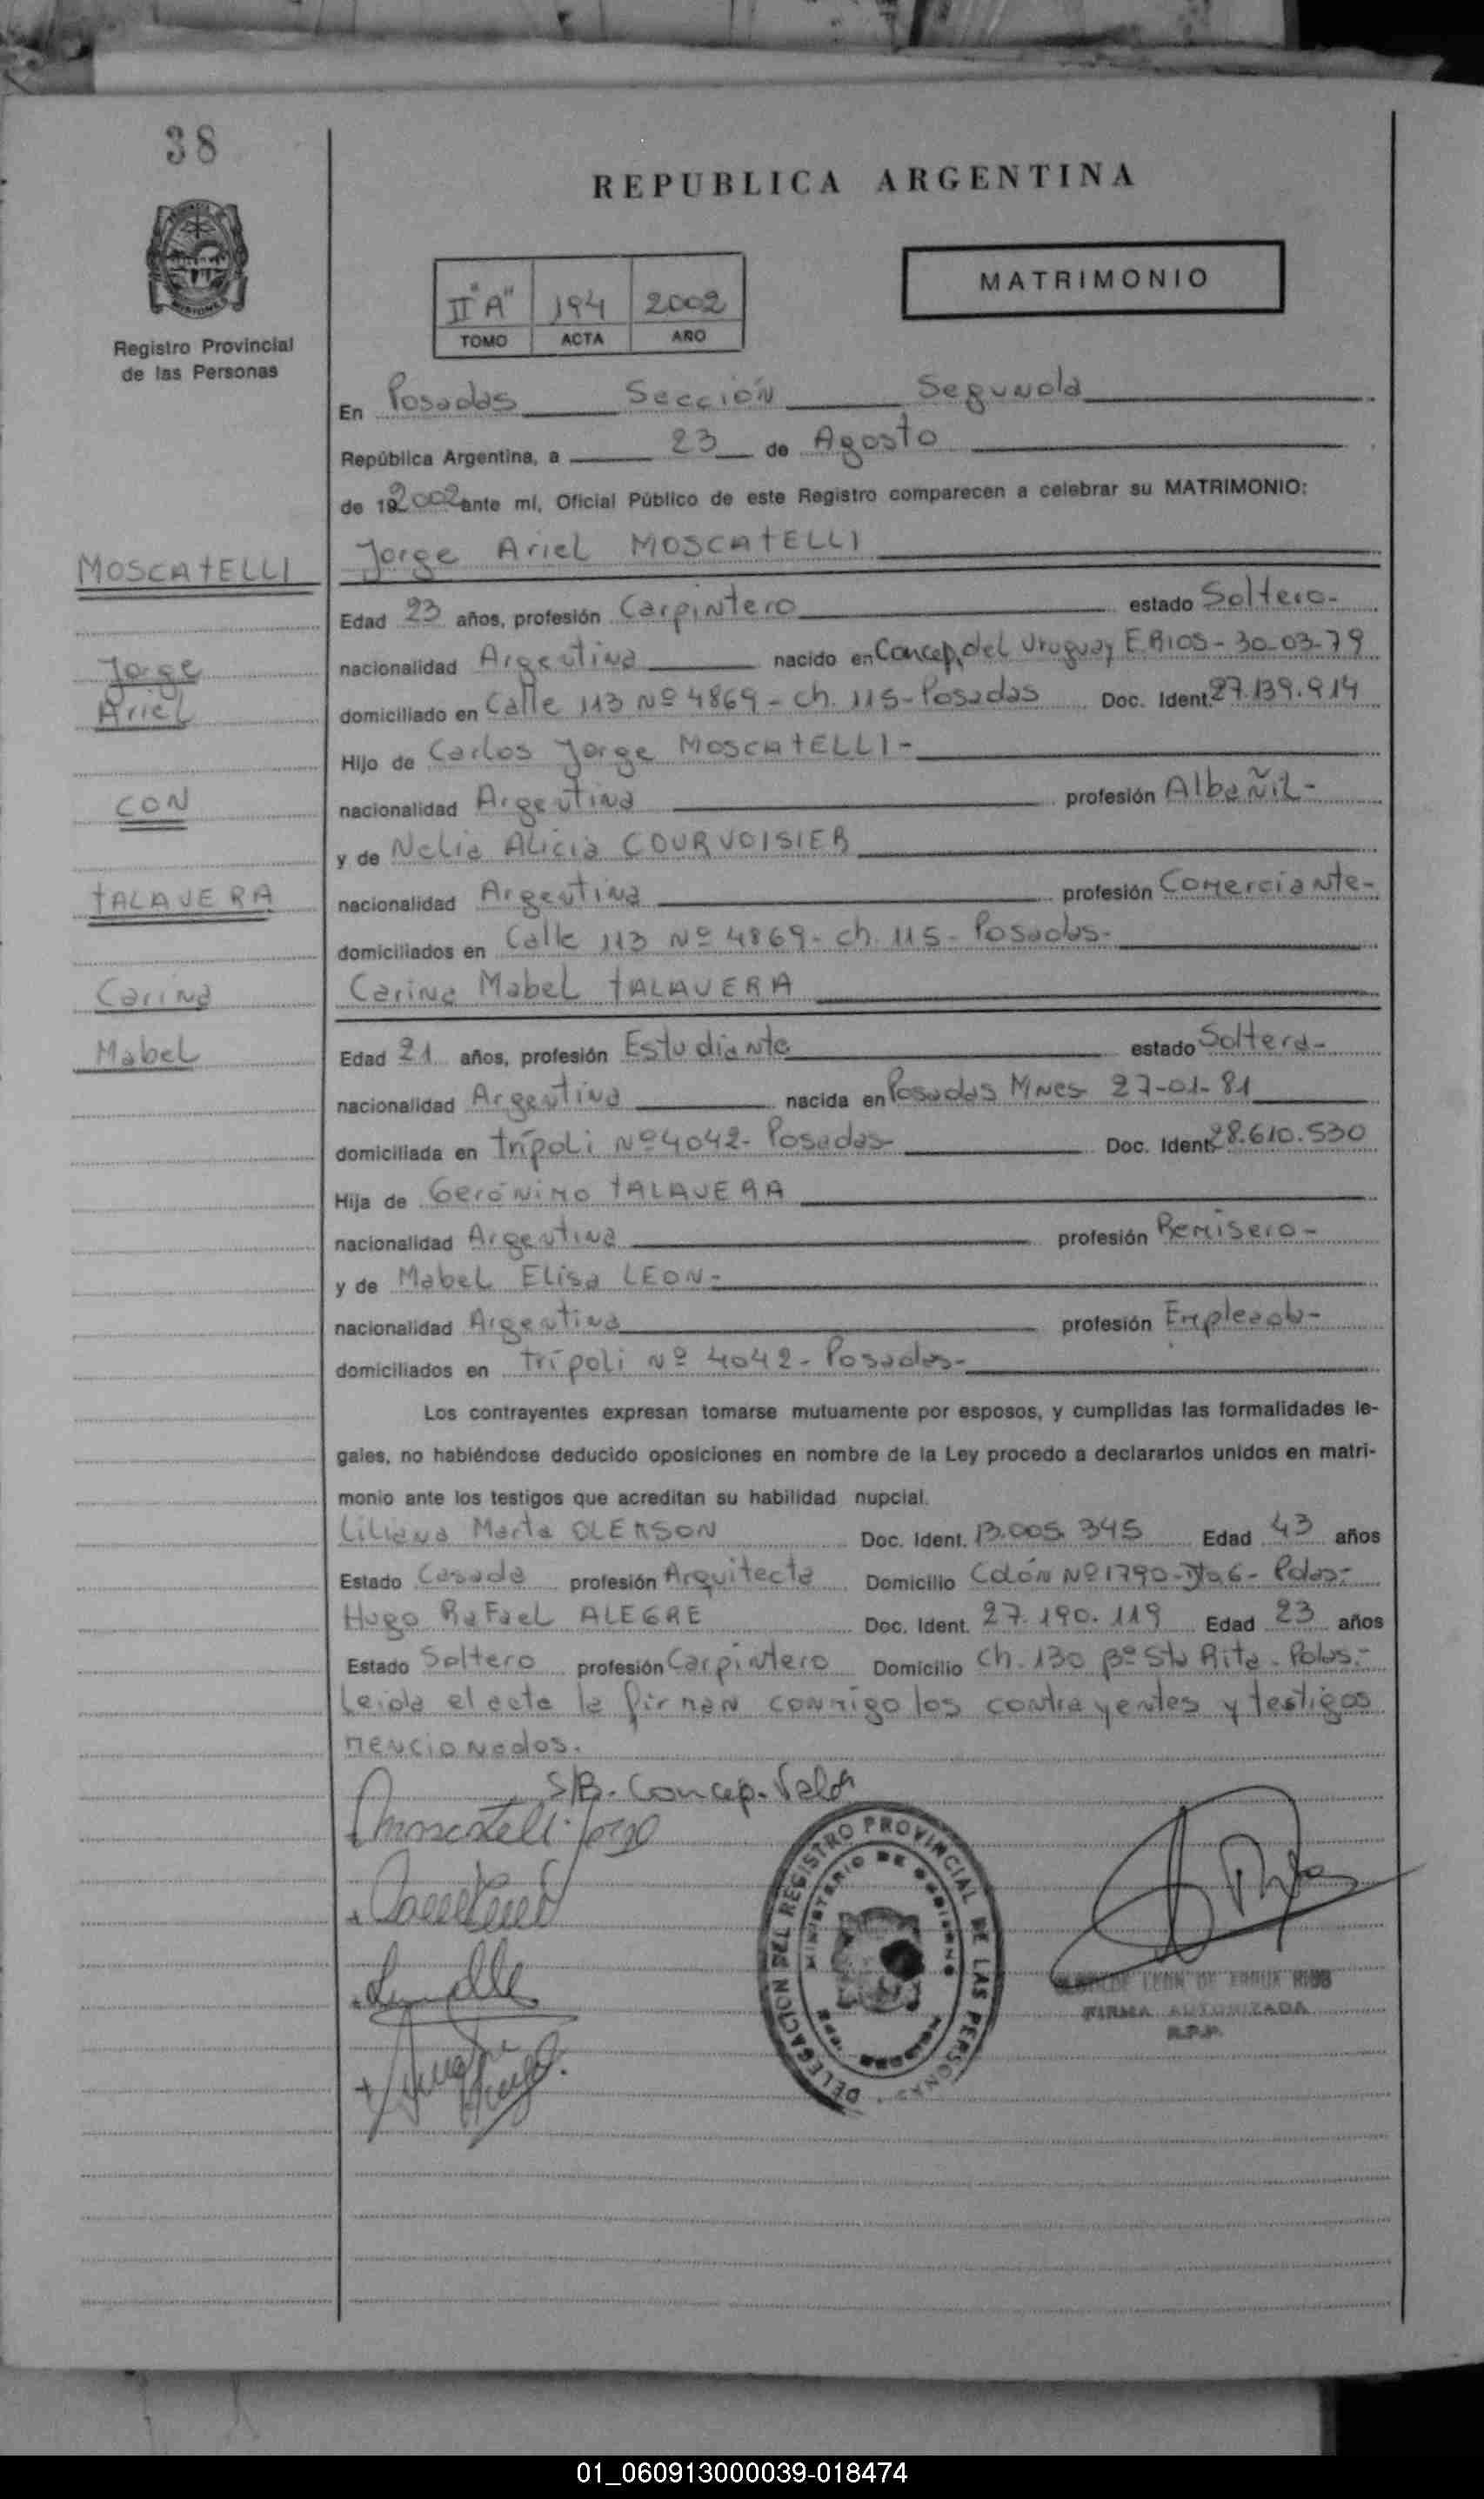 38
REPUBLICA ARGENTINA
MATRIMONIO
II "A" 194 2002
TOMO ACTA AÑO
Registro Provincial
de las Personas
En Posadas Sección Segunda
República Argentina, a 23 de Agosto
de 19 2002 ante mí, Oficial Público de este Registro comparecen a celebrar su MATRIMONIO:
MOSCATELLI
Jorge Ariel MOSCATELLI
Edad 23 años, profesión Carpintero estado Soltero-
Jorge
nacionalidad Argentina nacido en Concep. del Uruguay E RIOS - 30-03-79
Ariel
domiciliado en Calle 113 Nº 4869 - ch. 115 - Posadas Doc. Ident. 27.139.914
Hijo de Carlos Jorge MOSCATELLI -
CON
nacionalidad Argentina profesión Albañil -
y de Nelia Alicia COURVOISIER
TALAVERA
nacionalidad Argentina profesión Comerciante-
domiciliados en Calle 113 Nº 4869 - ch. 115 - Posadas-
Carina
Carina Mabel TALAVERA
Mabel
Edad 21 años, profesión Estudiante estado Soltera-
nacionalidad Argentina nacida en Posadas Mnes 27-01-81
domiciliada en Trípoli Nº 4042 - Posadas- Doc. Ident. 28.610.530
Hija de Gerónimo TALAVERA
nacionalidad Argentina profesión Remisero -
y de Mabel Elisa LEON -
nacionalidad Argentina profesión Empleada -
domiciliados en Trípoli Nº 4042 - Posadas-
Los contrayentes expresan tomarse mutuamente por esposos, y cumplidas las formalidades le-
gales, no habiéndose deducido oposiciones en nombre de la Ley procedo a declararlos unidos en matri-
monio ante los testigos que acreditan su habilidad nupcial.
Liliana Marta OLEKSON Doc. Ident. 13.005.345 Edad 43 años
Estado Casada profesión Arquitecta Domicilio Colón Nº 1790 - Dto 6 - Pdas-
Hugo Rafael ALEGRE Doc. Ident. 27.190.119 Edad 23 años
Estado Soltero profesión Carpintero Domicilio Ch. 130 Bº Sta Rita - Pdas.-
Leida el acta la firman conmigo los contrayentes y testigos
mencionados.
S/B. Concep. Vale
Moscatelli Jorge
DELEGACION DEL REGISTRO PROVINCIAL DE LAS PERSONAS
MINISTERIO DE GOBIERNO
FIRMA AUTORIZADA
R.P.P.
01_060913000039-018474